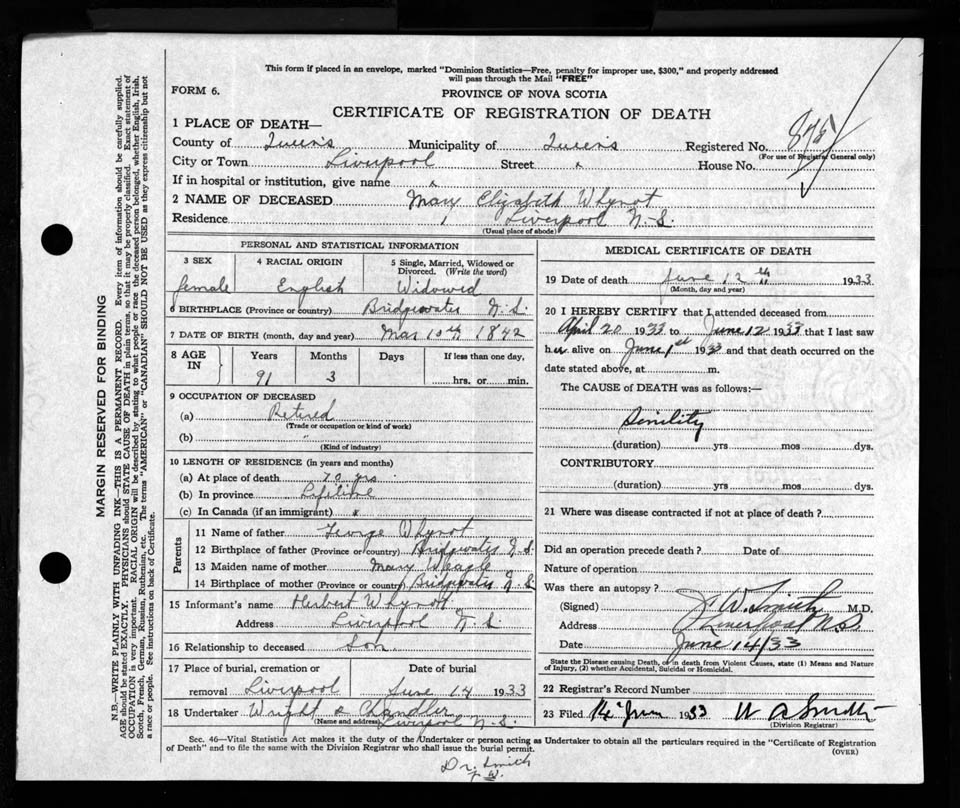 This form if placed in an envelope, marked "Dominion Statistics—Free, penalty for improper use, $300," and properly addressed
will pass through the Mail "FREE"
FORM 6.
PROVINCE OF NOVA SCOTIA
CERTIFICATE OF REGISTRATION OF DEATH
875
1 PLACE OF DEATH—
County of Queens Municipality of Queens Registered No.
(For use of Registrar General only)
City or Town Liverpool Street x House No.
If in hospital or institution, give name x
2 NAME OF DECEASED Mary Elizabeth Whynot
Residence Liverpool N.S.
(Usual place of abode)
PERSONAL AND STATISTICAL INFORMATION
3 SEX 4 RACIAL ORIGIN 5 Single, Married, Widowed or
Divorced. (Write the word)
female English Widowed
6 BIRTHPLACE (Province or country) Bridgewater N.S.
7 DATE OF BIRTH (month, day and year) Mar 10th 1842
8 AGE IN Years Months Days If less than one day,
91 3 hrs. or min.
9 OCCUPATION OF DECEASED
(a) Retired
(Trade or occupation or kind of work)
(b) "
(Kind of industry)
10 LENGTH OF RESIDENCE (in years and months)
(a) At place of death 70 yrs
(b) In province Lifetime
(c) In Canada (if an immigrant) x
Parents
11 Name of father George Whynot
12 Birthplace of father (Province or country) Bridgewater N.S.
13 Maiden name of mother Mary
14 Birthplace of mother (Province or country) Bridgewater N.S.
15 Informant's name Herbert Whynot
Address Liverpool N.S
16 Relationship to deceased Son
17 Place of burial, cremation or Date of burial
removal Liverpool June 14 1933
18 Undertaker Wright & Chandler
(Name and address) Liverpool N.S.
MEDICAL CERTIFICATE OF DEATH
19 Date of death June 12th 1933
(Month, day and year)
20 I HEREBY CERTIFY that I attended deceased from
April 20 1933 to June 12 1933 that I last saw
her alive on June 1st 1933 and that death occurred on the
date stated above, at m.
The CAUSE of DEATH was as follows:—
Senility
(duration) yrs mos dys.
CONTRIBUTORY
(duration) yrs mos dys.
21 Where was disease contracted if not at place of death?
Did an operation precede death? Date of
Nature of operation
Was there an autopsy?
(Signed) J. W. Smith M.D.
Address Liverpool N.S
Date June 14/33
State the Disease causing Death, or in death from Violent Causes, state (1) Means and Nature
of Injury, (2) whether Accidental, Suicidal or Homicidal.
22 Registrar's Record Number
23 Filed 14 June 1933 Smith
(Division Registrar)
Sec. 46—Vital Statistics Act makes it the duty of the Undertaker or person acting as Undertaker to obtain all the particulars required in the "Certificate of Registration
of Death" and to file the same with the Division Registrar who shall issue the burial permit.
(OVER)
Dr. Smith
MARGIN RESERVED FOR BINDING
N.B.—WRITE PLAINLY WITH UNFADING INK—THIS IS A PERMANENT RECORD. Every item of information should be carefully supplied.
AGE should be stated EXACTLY. PHYSICIANS should STATE CAUSE OF DEATH in plain terms, so that it may be properly classified. Exact statement of
OCCUPATION is very important. RACIAL ORIGIN will be described by stating to what people or race the deceased person belonged, whether English, Irish,
Scotch, French, German, Russian, Ruthenian, etc. The terms "AMERICAN" or "CANADIAN" SHOULD NOT BE USED as they express citizenship but not
a race or people. See instructions on back of Certificate.